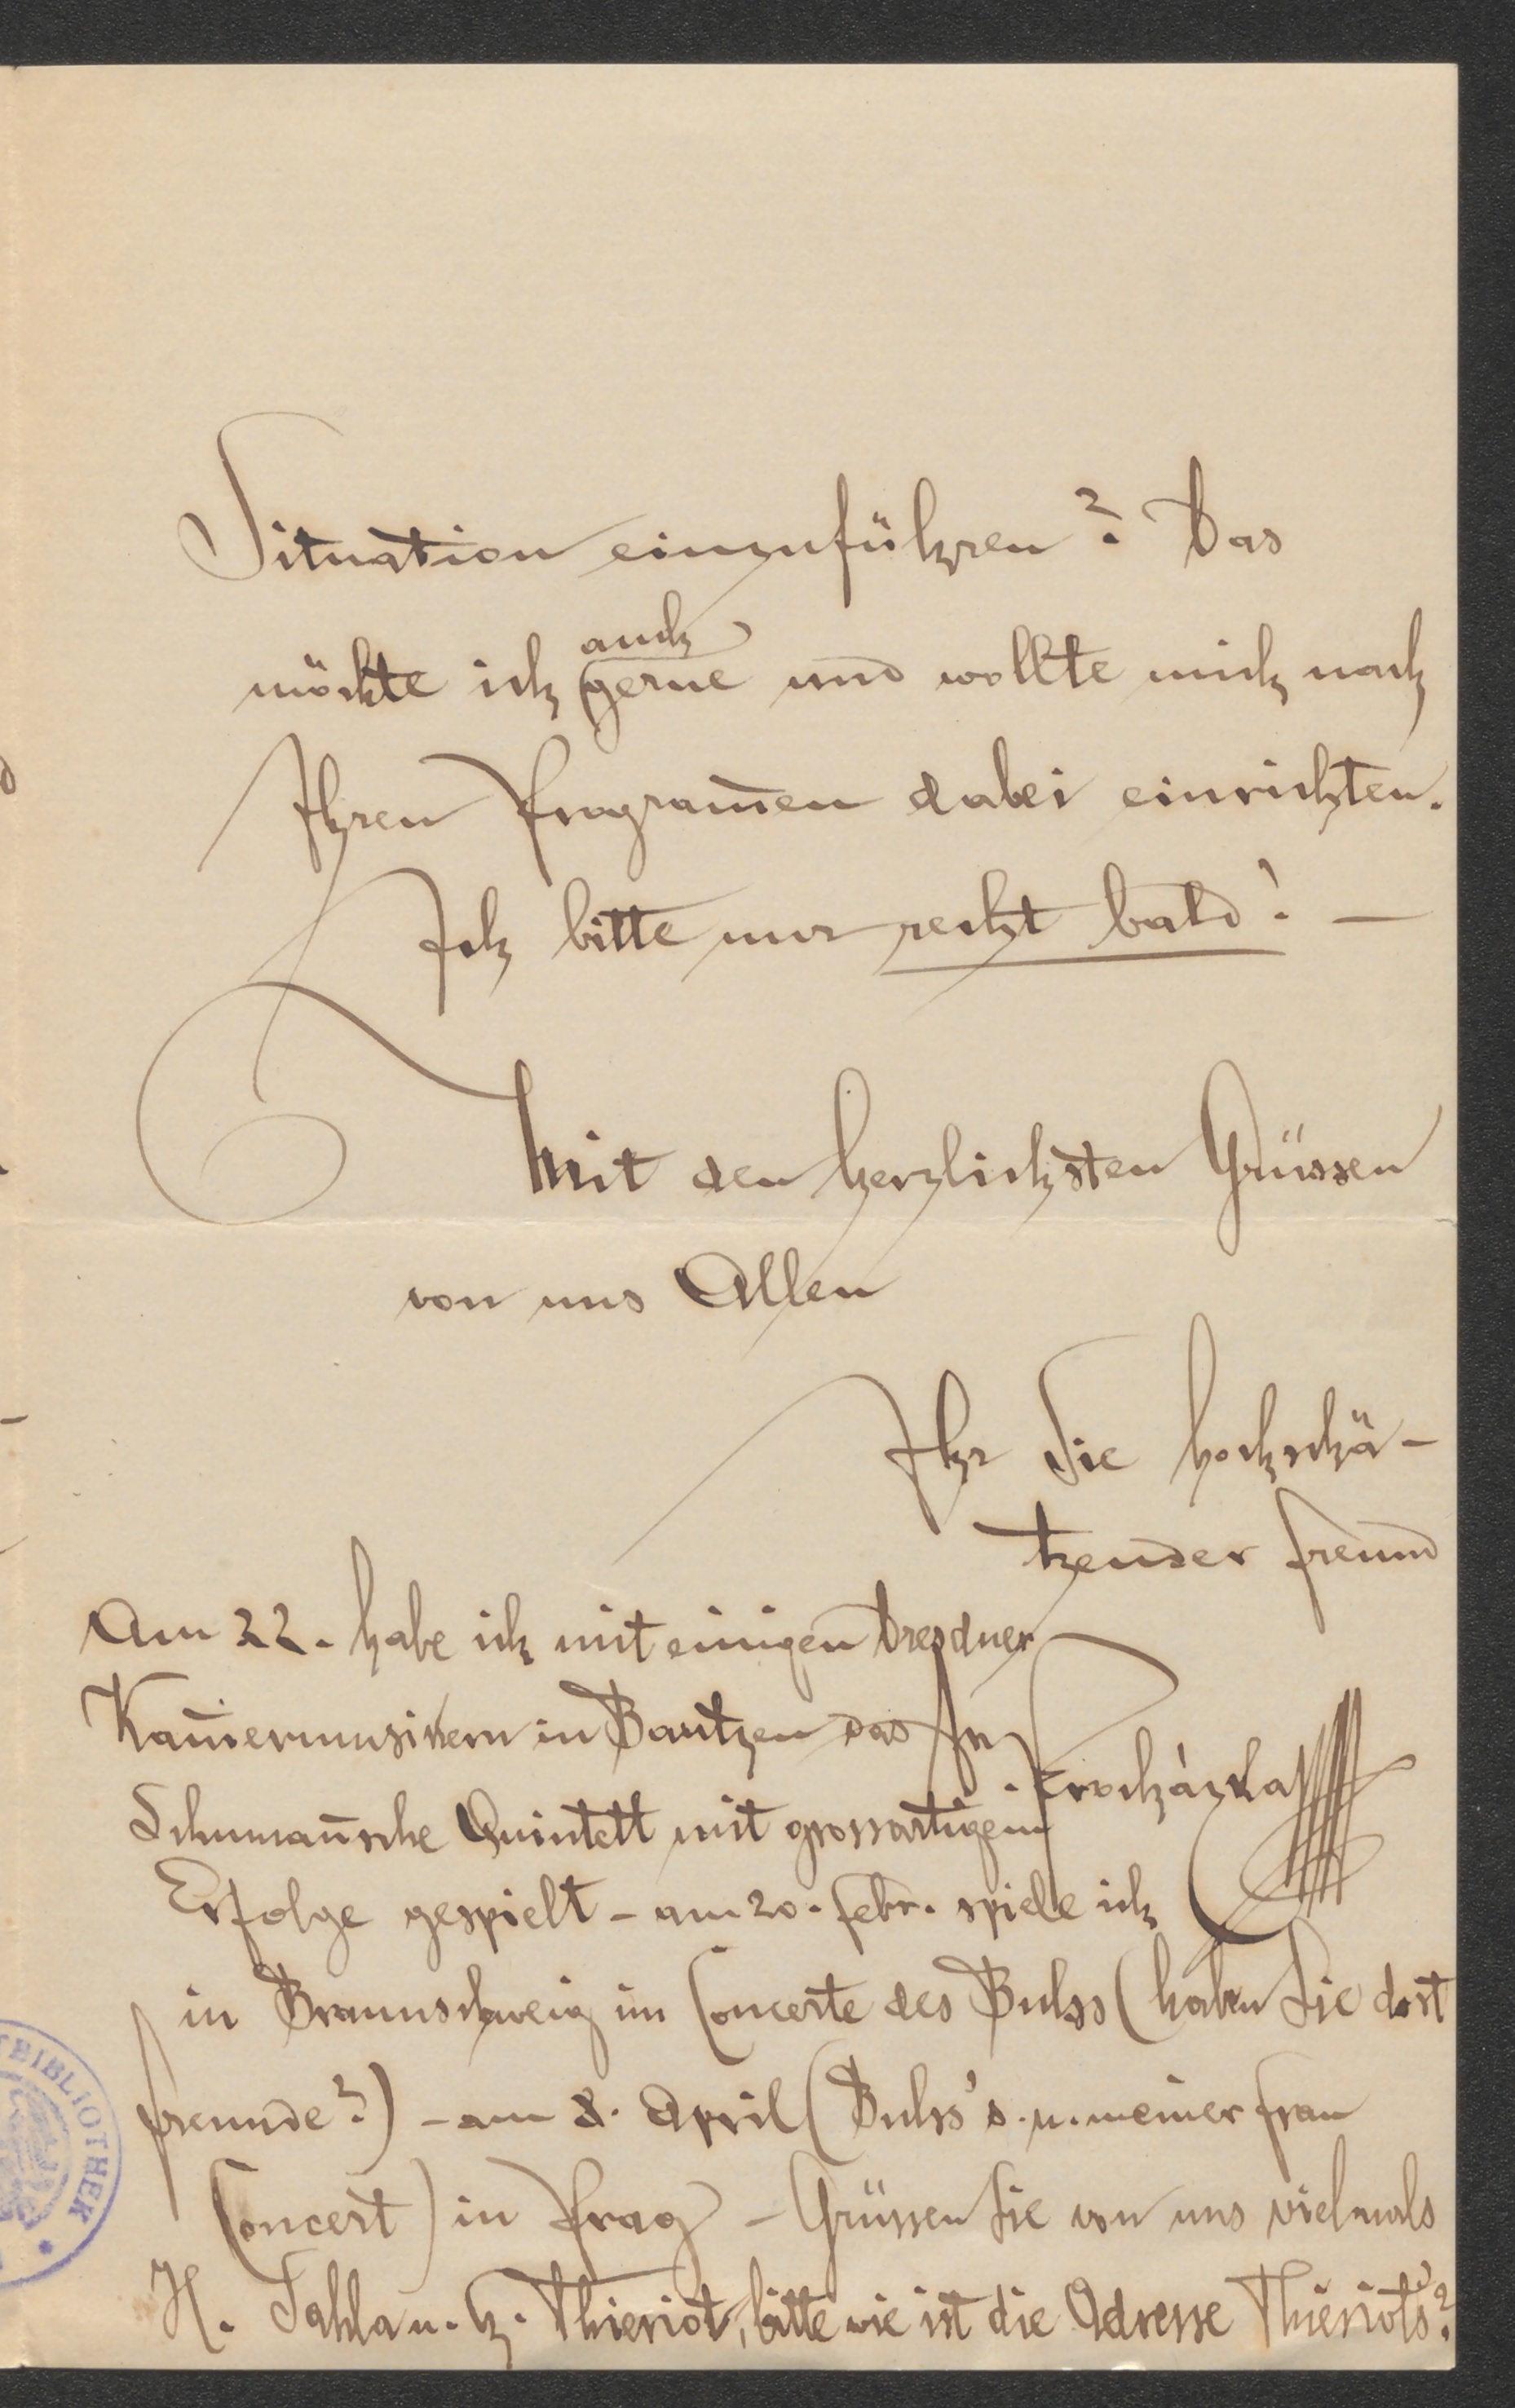 Situation einzuführen? Das
auch
möchte ich gerne und wollte mich nach
Ihren Programm̄en dabei einrichten.
Ich bitte nur recht bald! —
Mit den herzlichsten Grüssen
von uns Allen
Ihr Sie hochschä-
tzender Freund
Procházka
Am 22. habe ich mit einigen Dresdner
Kam̄ermusikern in Bautzen das
Schuman̄sche Quintett mit grossartigem
Erfolge gespielt – am 20. Febr. spiele ich
in Braunschweig im Concerte des Bulss (haben Sie dort
Freunde?) – am 8. April (Bulss's. u. meiner Frau
Concert) in Prag – Grüssen Sie von uns vielmals
H. Sahla u. H. Thieriot, bitte wie ist die Adresse Thieriots'?
BIBLIOTHEK